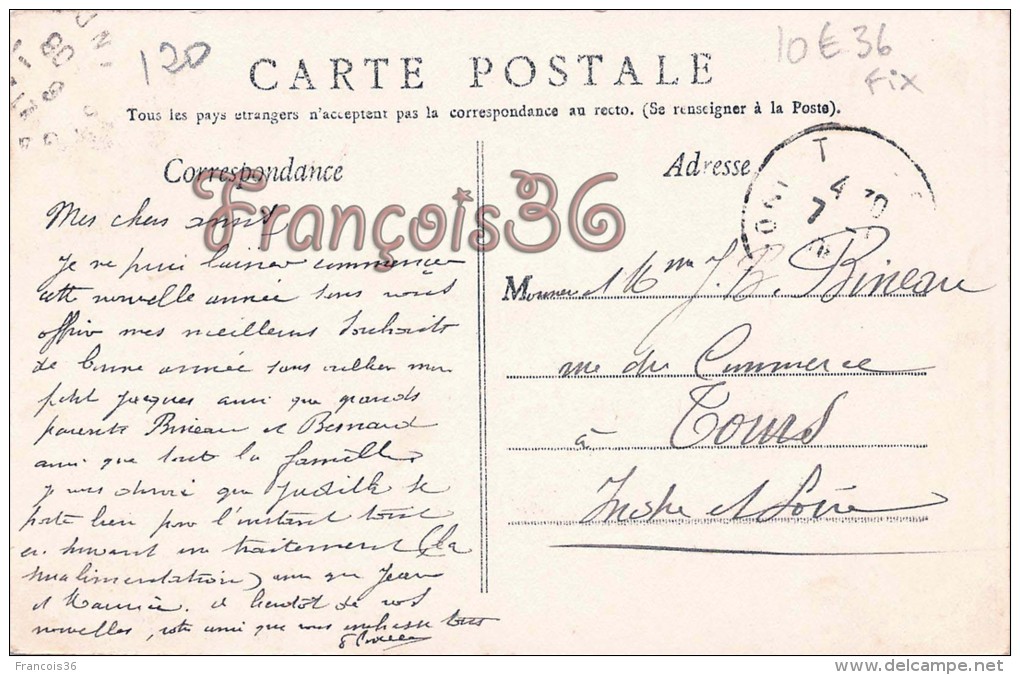 120
10€36
Fix
CARTE POSTALE
Tous les pays etrangers n'acceptent pas la correspondance au recto. (Se renseigner à la Poste).
Correspondance
Adresse
François36
Mes chers amis
Je ne puis laisser commencer
cette nouvelle année sans vous
offrir mes meilleurs souhaits
de bonne année sans oublier mon
petit Jacques ainsi que grands
parents Bineau et Besnard
ainsi que tout la famille
je vous dirai que se
porte bien pour l'instant tout
en suivant un traitement (la
suralimentation) ainsi que Jean
et Maurice. à bientôt de vos
nouvelles, votre ami que vous embrasse tous
Monsieur et Mme J. B. Bineau
rue du Commerce
à Tours
Indre et Loire
Francois36
www.delcampe.net